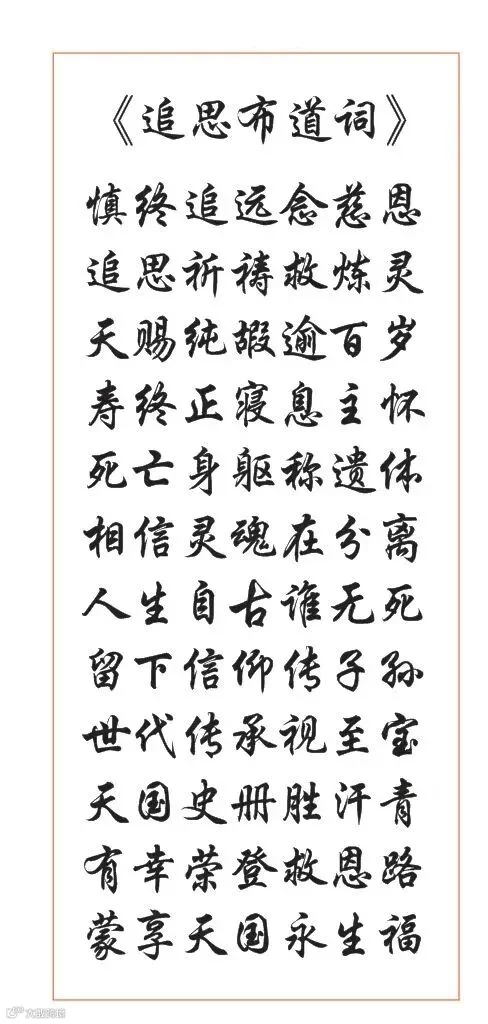 《追思布道词》
慎终追远念慈恩
追思祈祷救炼灵
天赐纯嘏逾百岁
寿终正寝息主怀
死亡身躯称遗体
相信灵魂在分离
人生自古谁无死
留下信仰传子孙
世代传承视至宝
天国史册胜汗青
有幸荣登救恩路
蒙享天国永生福